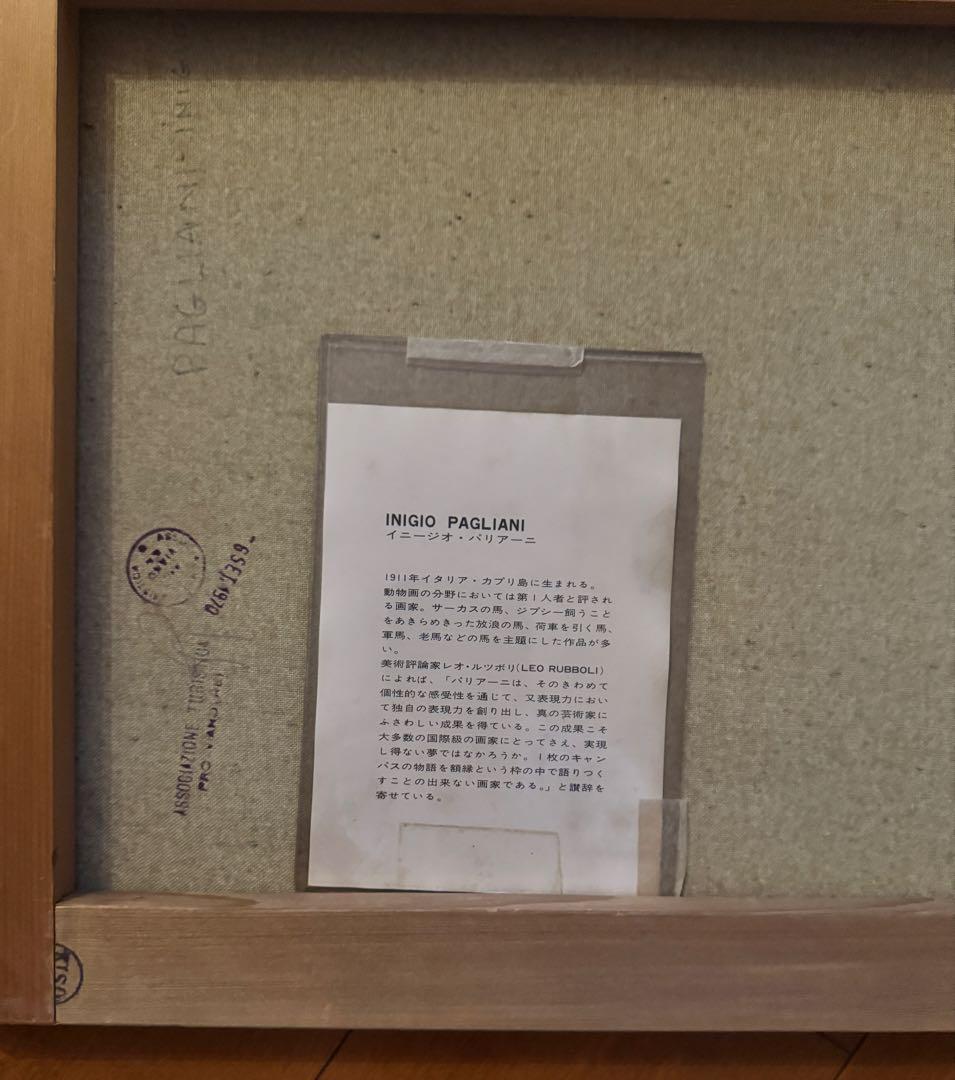 PAGLIANI INIG
INIGIO PAGLIANI
イニージオ・パリアーニ
1911年イタリア・カプリ島に生まれる。
動物画の分野においては第1人者と評され
る画家。サーカスの馬、ジプシー飼うこと
をあきらめきった放浪の馬、荷車を引く馬、
軍馬、老馬などの馬を主題にした作品が多
い。
美術評論家レオ・ルツボリ(LEO RUBBOLI)
によれば、「パリアーニは、そのきわめて
個性的な感受性を通じて、又表現力におい
て独自の表現力を創り出し、真の芸術家に
ふさわしい成果を得ている。この成果こそ
大多数の国際級の画家にとってさえ、実現
し得ない夢ではなかろうか。1枚のキャン
バスの物語を額縁という枠の中で語りつく
すことの出来ない画家である。」と讃辞を
寄せている。
ASSOCIAZIONE
PRO